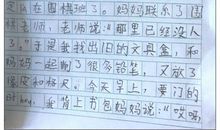 定队在围棋班了。妈妈联系了围
棋老师，老师说："那里已经没人
了。"于是我找出旧的文具盒，和
妈妈一起削了很多铅笔，又放了
橡皮和格尺。今天早上，要门的
时hou，我背上书包妈妈说："哎呀，